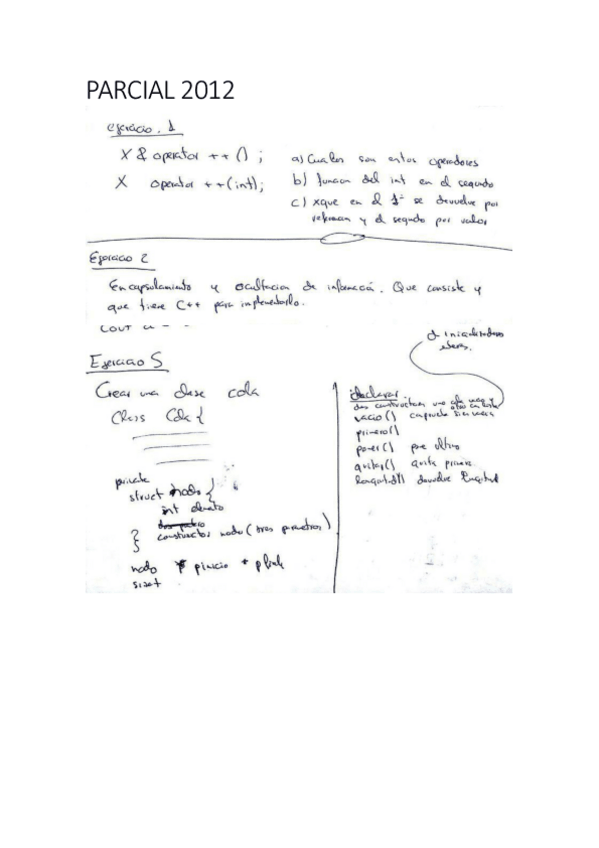 PARCIAL 2012
Ejercicio. 1
X & operator ++ () ;
X operator ++(int);
a) Cuales son estos operadores
b) funcion del int en el segundo
c) xque en el 1º se devuelve por
referencia y el segundo por valor
Ejercicio 2
Encapsulamiento y ocultacion de información. Que consiste y
que tiene C++ para implementarlo.
COUT << - -
Ejercicio 5
Crear una clase cola
Class Cola {
private
struct nodo {
int elemento
} constructor nodo (tres parametros)
nodo * pinicio *
size_t
de inicializadores
declarar
dos constructores uno cola vacia y otro
vacio() comprueba si es vacia
primero()
poner() pone ultimo
quitar() quita primero
longitud() devuelve longitud